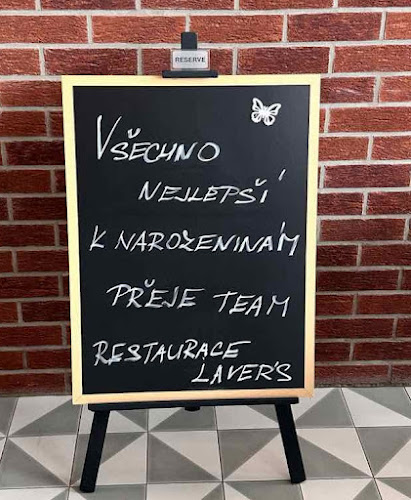 RESERVE
VŠECHNO
NEJLEPŠÍ
K NAROZENINÁM
PŘEJE TEAM
RESTAURACE
LAVER'S